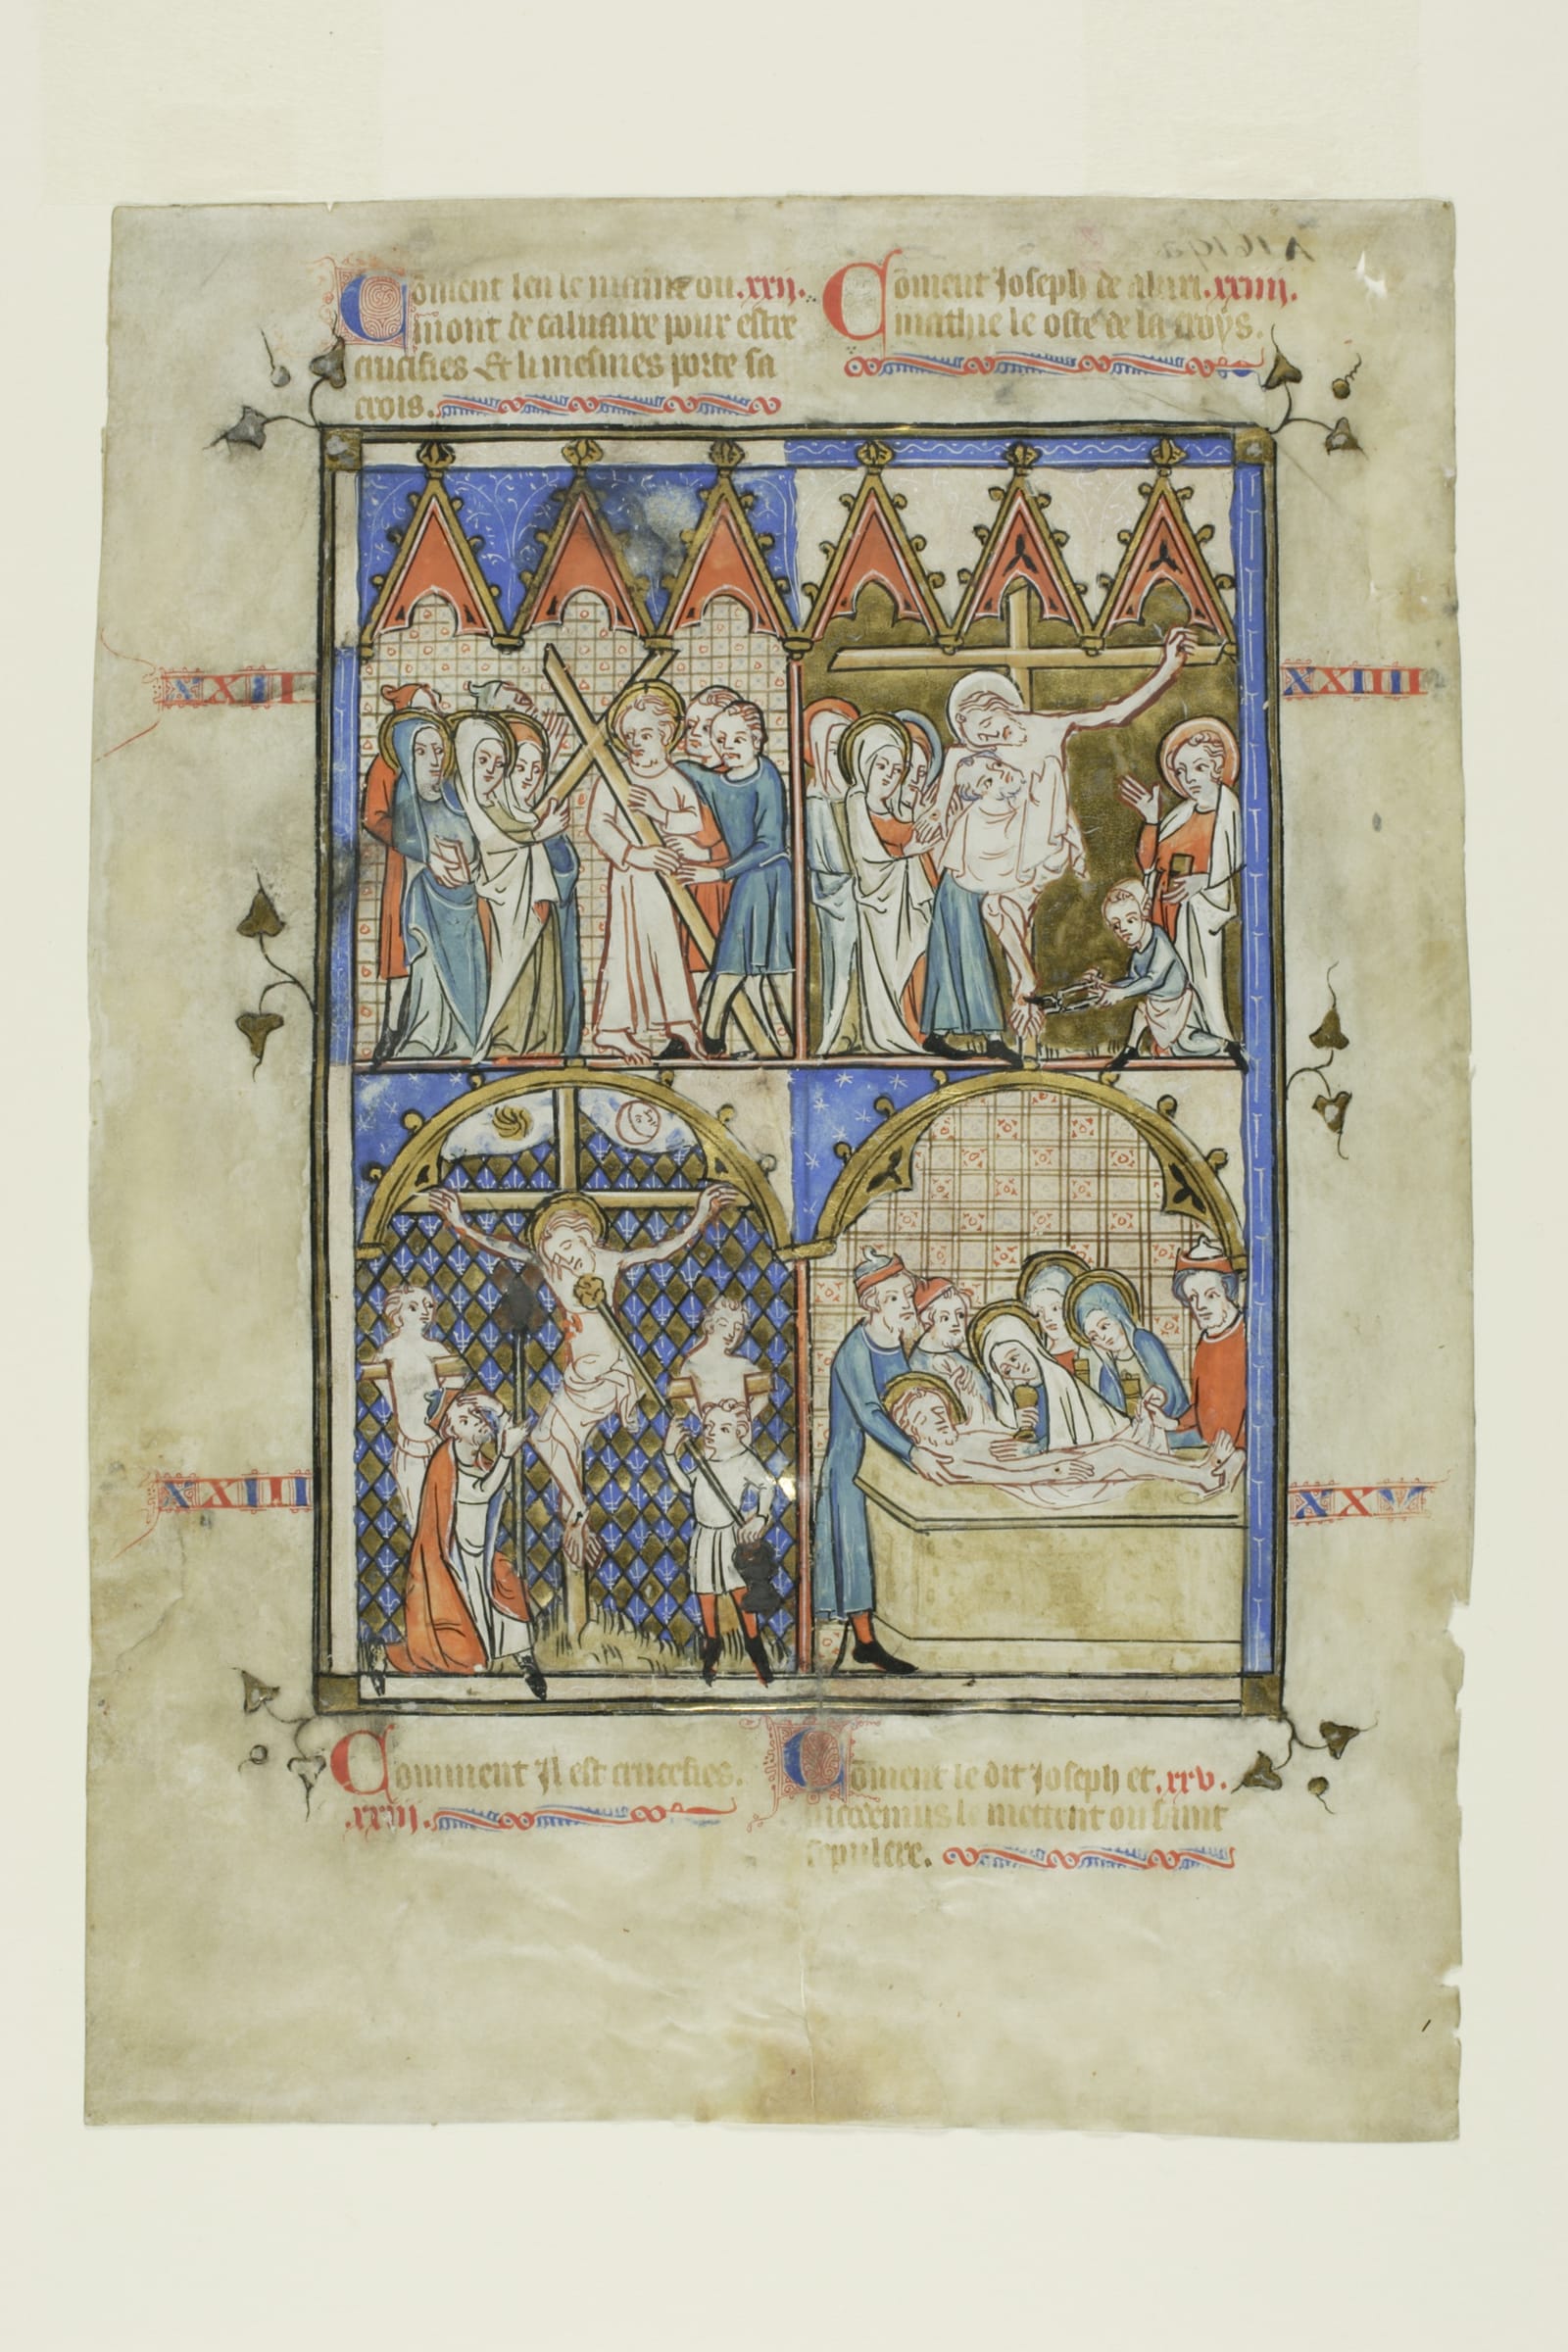 Cõment len le maine ou .xxii.
mont de caluaire pour estre
crucifies Et li mesmes porte sa
crois.
Cõment Joseph de abari .xxiiii.
mathie le oste de la croys.
XXII
XXIIII
XXIII
XXV
Comment Jl est crucefies.
.xxiii.
Cõment le dit Joseph et .xxv.
le mettent ou saint
sepulcre.